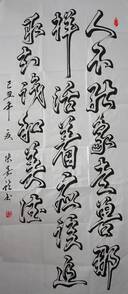 人不能象走兽那
样活着应该追
求知识和美德
己丑年